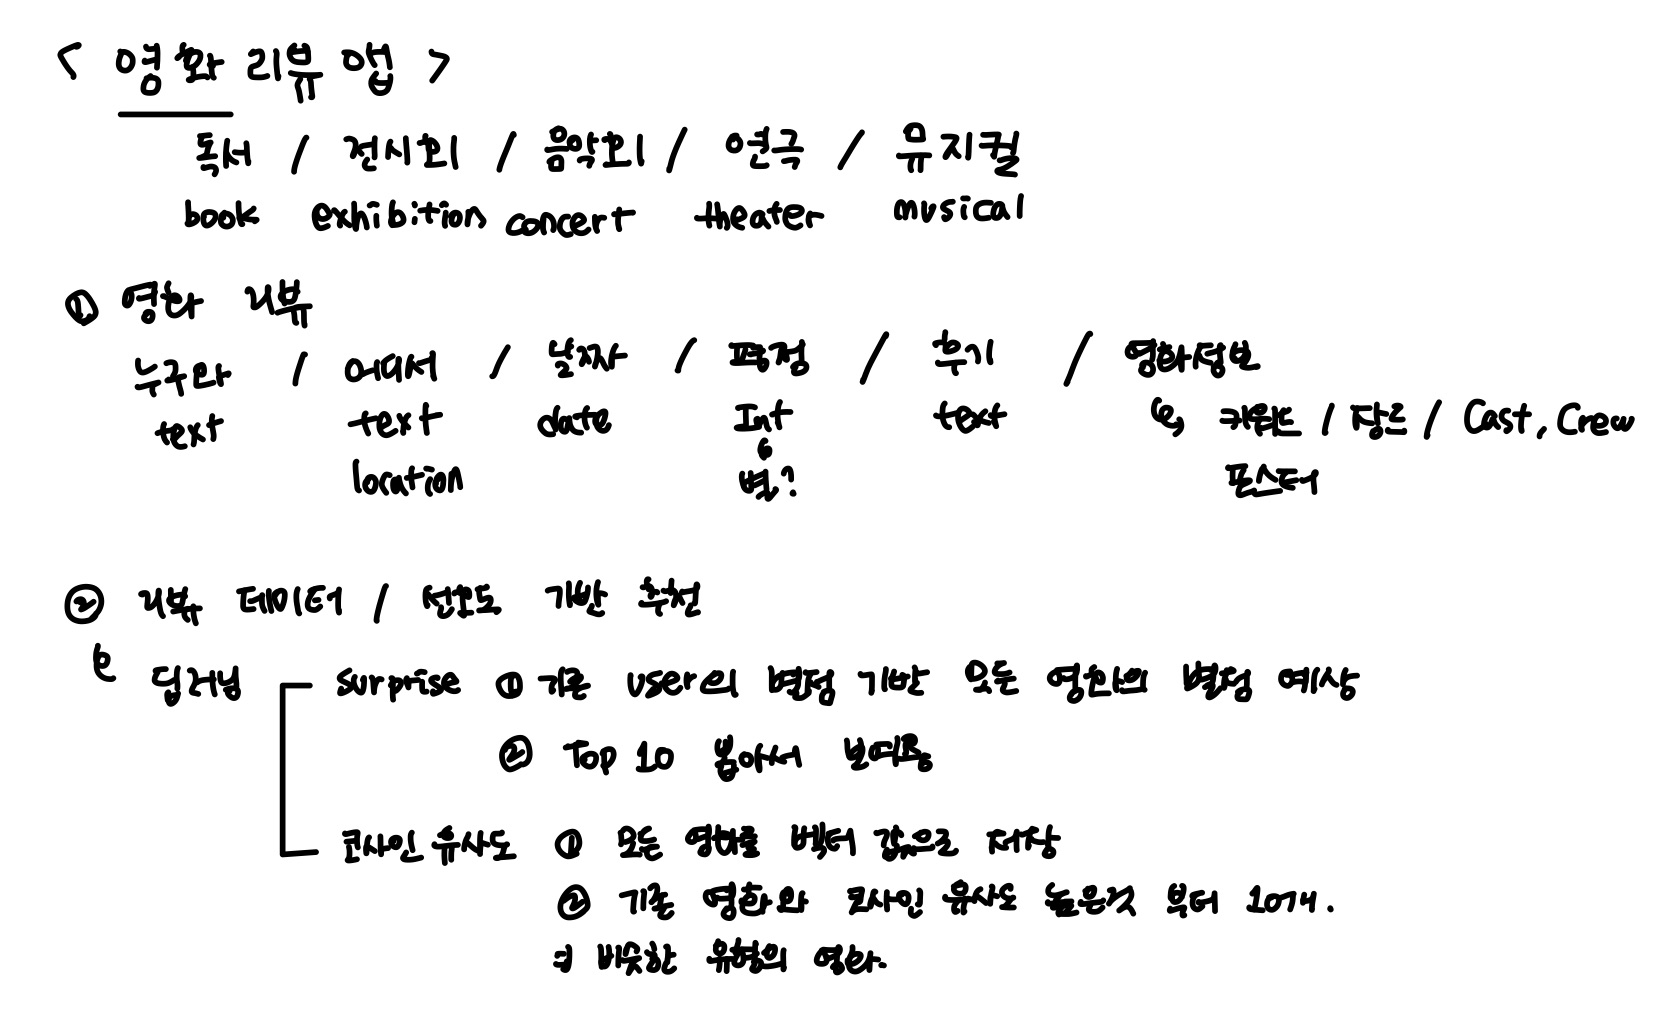 < 영화 리뷰 앱 >
독서 / 전시회 / 음악회 / 연극 / 뮤지컬
book exhibition concert theater musical
① 영화 리뷰
누구와 / 어디서 / 날짜 / 평점 / 후기 / 영화정보
text text date Int text ↳ 키워드 / 장르 / Cast, Crew
location 별? 포스터
② 리뷰 데이터 / 선호도 기반 추천
딥러닝 surprise ① 기존 user의 별점 기반 모든 영화의 별점 예상
② Top 10 뽑아서 보여줌
코사인 유사도 ① 모든 영화를 벡터 값으로 저장
② 기존 영화와 코사인 유사도 높은것 부터 10개.
⇒ 비슷한 유형의 영화.